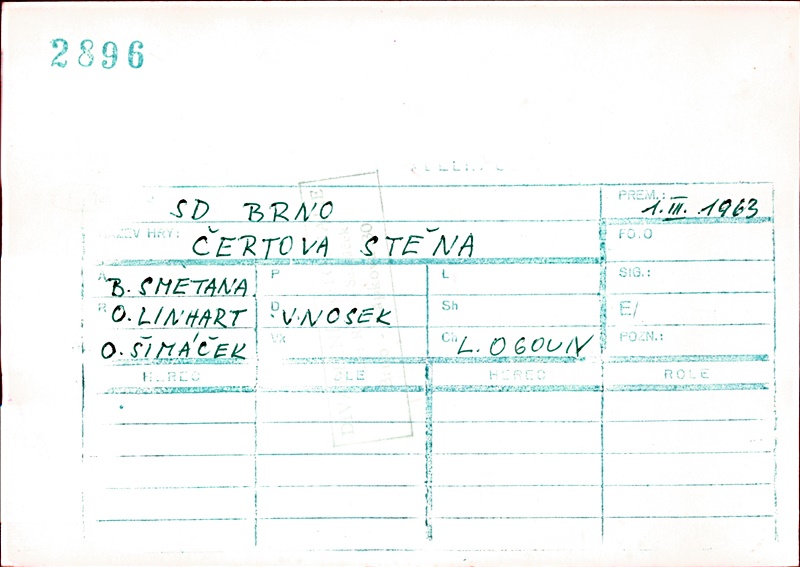 2896
SD BRNO
PREM.: 1. III. 1963
NÁZEV HRY: ČERTOVA STĚNA
FOTO
A B. SMETANA P L SIG.:
R O. LINHART D V. NOSEK Sh E/
O. ŠIMÁČEK Vk Ch L. OGOUN POZN.:
HEREC ROLE HEREC ROLE